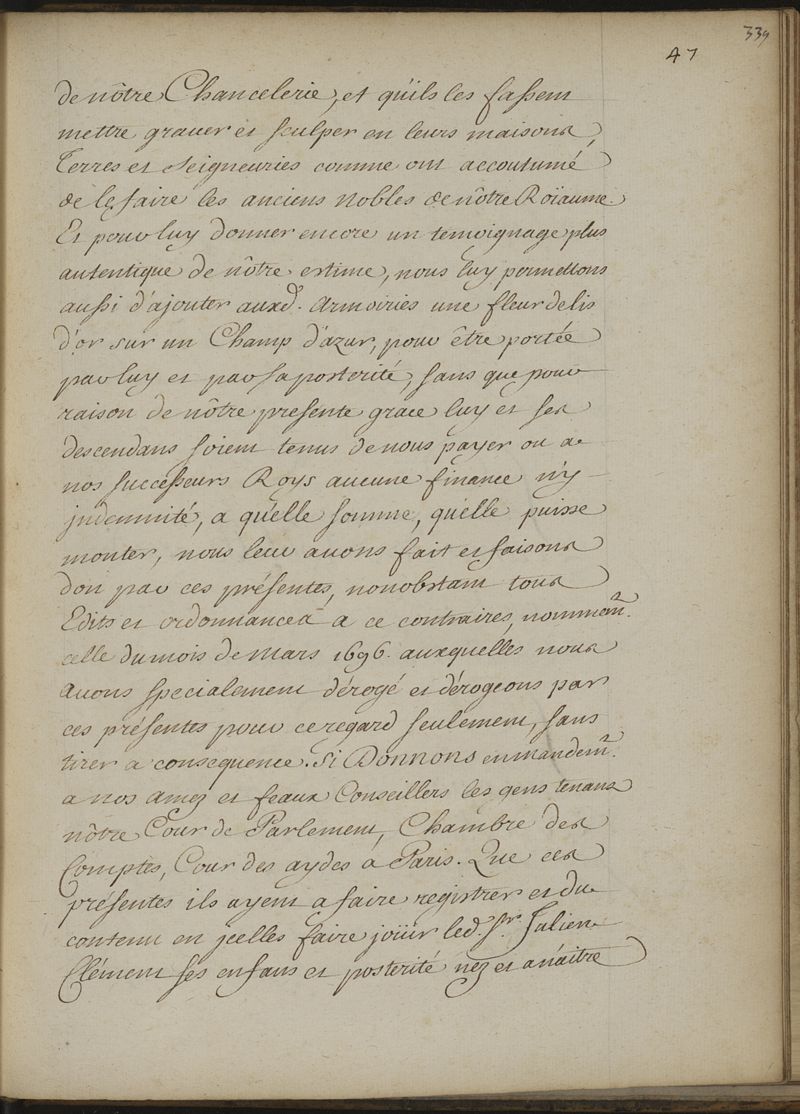 339
47
de nôtre Chancelerie, et qu'ils les fassent
mettre graver et sculper en leurs maisons,
Terres et Seigneuries comme ont accoutumé
de le faire les anciens nobles de nôtre Roïaume.
Et pour luy donner encore un temoignage plus
autentique de nôtre estime, nous luy permettons
aussi d'ajouter auxd. Armoiries une fleur de lis
d'or sur un Champ d'azur, pour être portée
par luy et par sa posterité, sans que pour
raison de nôtre presente grace luy et ses
descendans soient tenus de nous payer ou a
nos successeurs Roys aucune finance n'y
jndemnité, a qu'elle somme, qu'elle puisse
monter, nous leur avons fait et faisons
don par ces présentes, nonobstant tous
Edits et ordonnances à ce contraires, nommemt.
celle du mois de Mars 1696. auxquelles nous
avons specialement dérogé et dérogeons par
ces présentes pour ce regard seulement, sans
tirer a consequence. Si Donnons en mandemt.
a nos amez et feaux Conseillers les gens tenans
nôtre Cour de Parlement, Chambre des
Comptes, Cour des aydes à Paris. Que ces
présentes ils ayent a faire registrer et du
contenu en jcelles faire joüir led. Sr. Julien
Clément ses enfans et posterité nez et a naitre